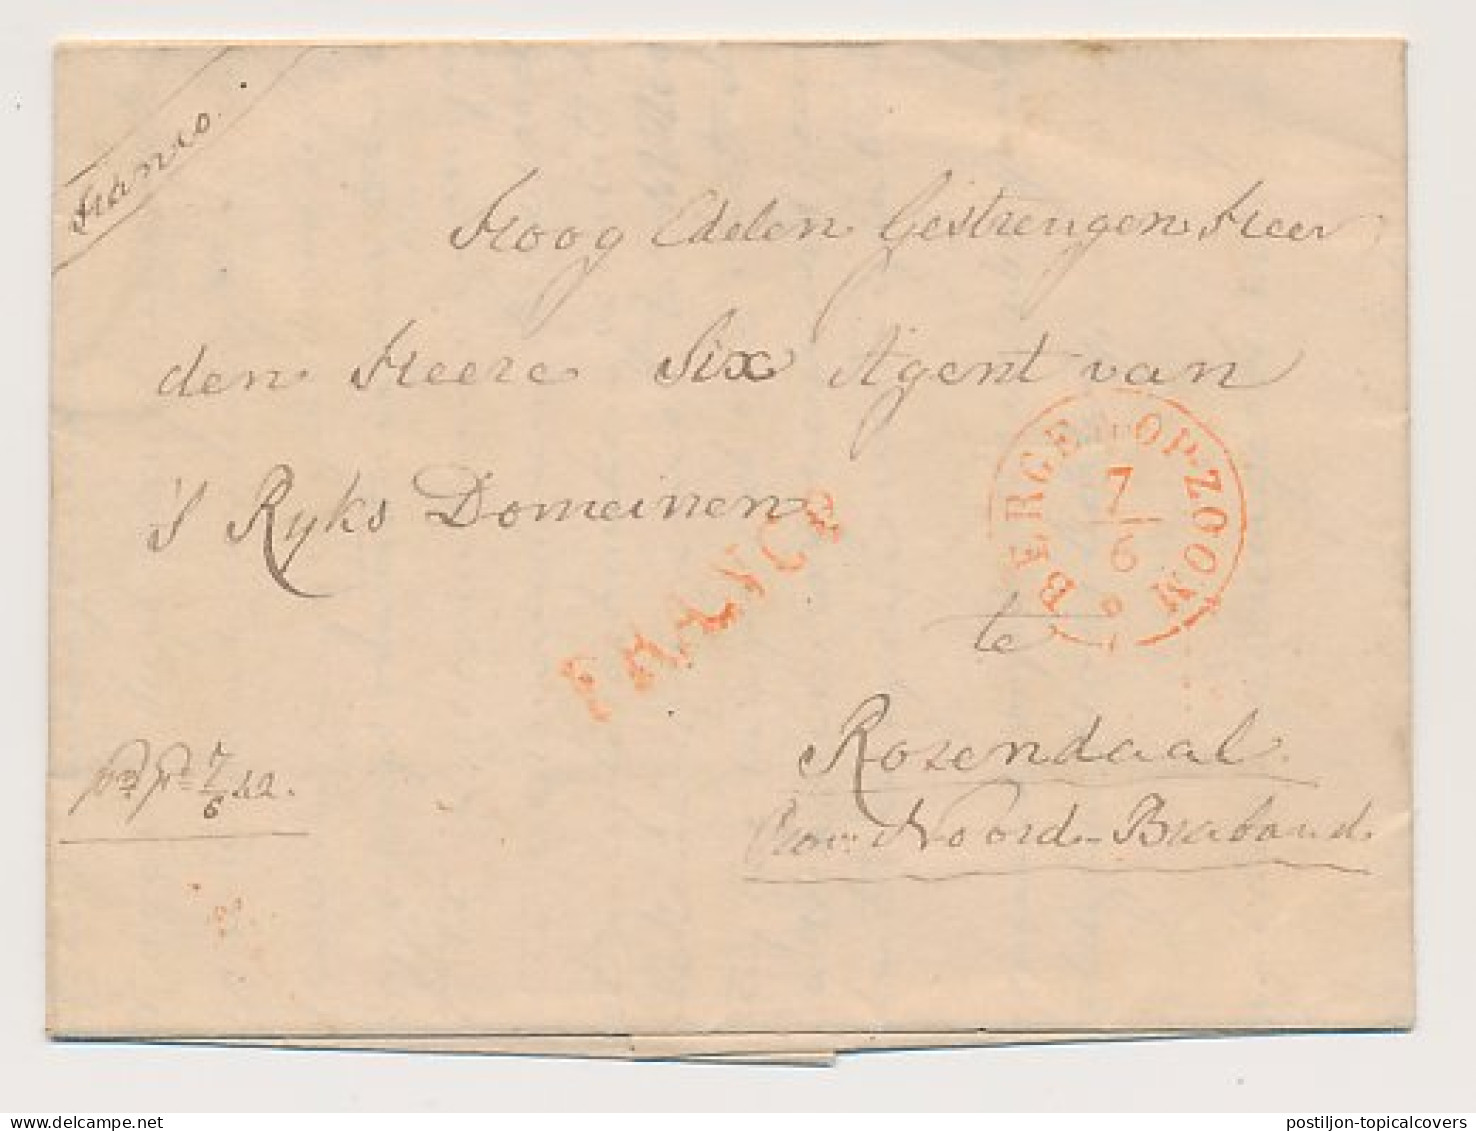 Franco.
Hoog Edelen Gestrengen Heer
den Heere Six Agent van
's Ryks Domeinen
FRANCO
BERGEN-OP-ZOOM
7
6
te
Rosendaal
Prov: Noord-Braband
7/6 42.
delcampe.net
postiljon-topicalcovers